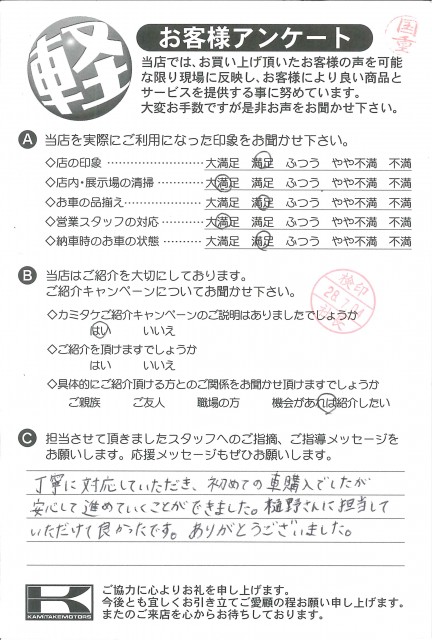 軽
お客様アンケート
国重
当店では、お買い上げ頂いたお客様の声を可能
な限り現場に反映し、お客様により良い商品と
サービスを提供する事に努めています。
大変お手数ですが是非お声をお聞かせ下さい。
A 当店を実際にご利用になった印象をお聞かせ下さい。
◇店の印象 ………………… 大満足 満足 ふつう やや不満 不満
◇店内・展示場の清掃………… 大満足 満足 ふつう やや不満 不満
◇お車の品揃え……………… 大満足 満足 ふつう やや不満 不満
◇営業スタッフの対応………… 大満足 満足 ふつう やや不満 不満
◇納車時のお車の状態………… 大満足 満足 ふつう やや不満 不満
B 当店はご紹介を大切にしております。
ご紹介キャンペーンについてお聞かせ下さい。
検印
28.7.04
◇カミタケご紹介キャンペーンのご説明はありましたでしょうか
はい いいえ
◇ご紹介を頂けますでしょうか
はい いいえ
◇具体的にご紹介頂ける方とのご関係をお聞かせ頂けますでしょうか
ご親族 ご友人 職場の方 機会があれば紹介したい
C 担当させて頂きましたスタッフへのご指摘、ご指導メッセージを
お願いします。応援メッセージもぜひお願いします。
丁寧に対応していただき、初めての車購入でしたが
安心して進めていくことができました。樋野さんに担当して
いただけて良かったです。ありがとうございました。
K
KAMITAKEMOTORS
ご協力に心よりお礼を申し上げます。
今後とも宜しくお引き立てご愛顧の程お願い申し上げます。
またのご来店を心からお待ちしております。